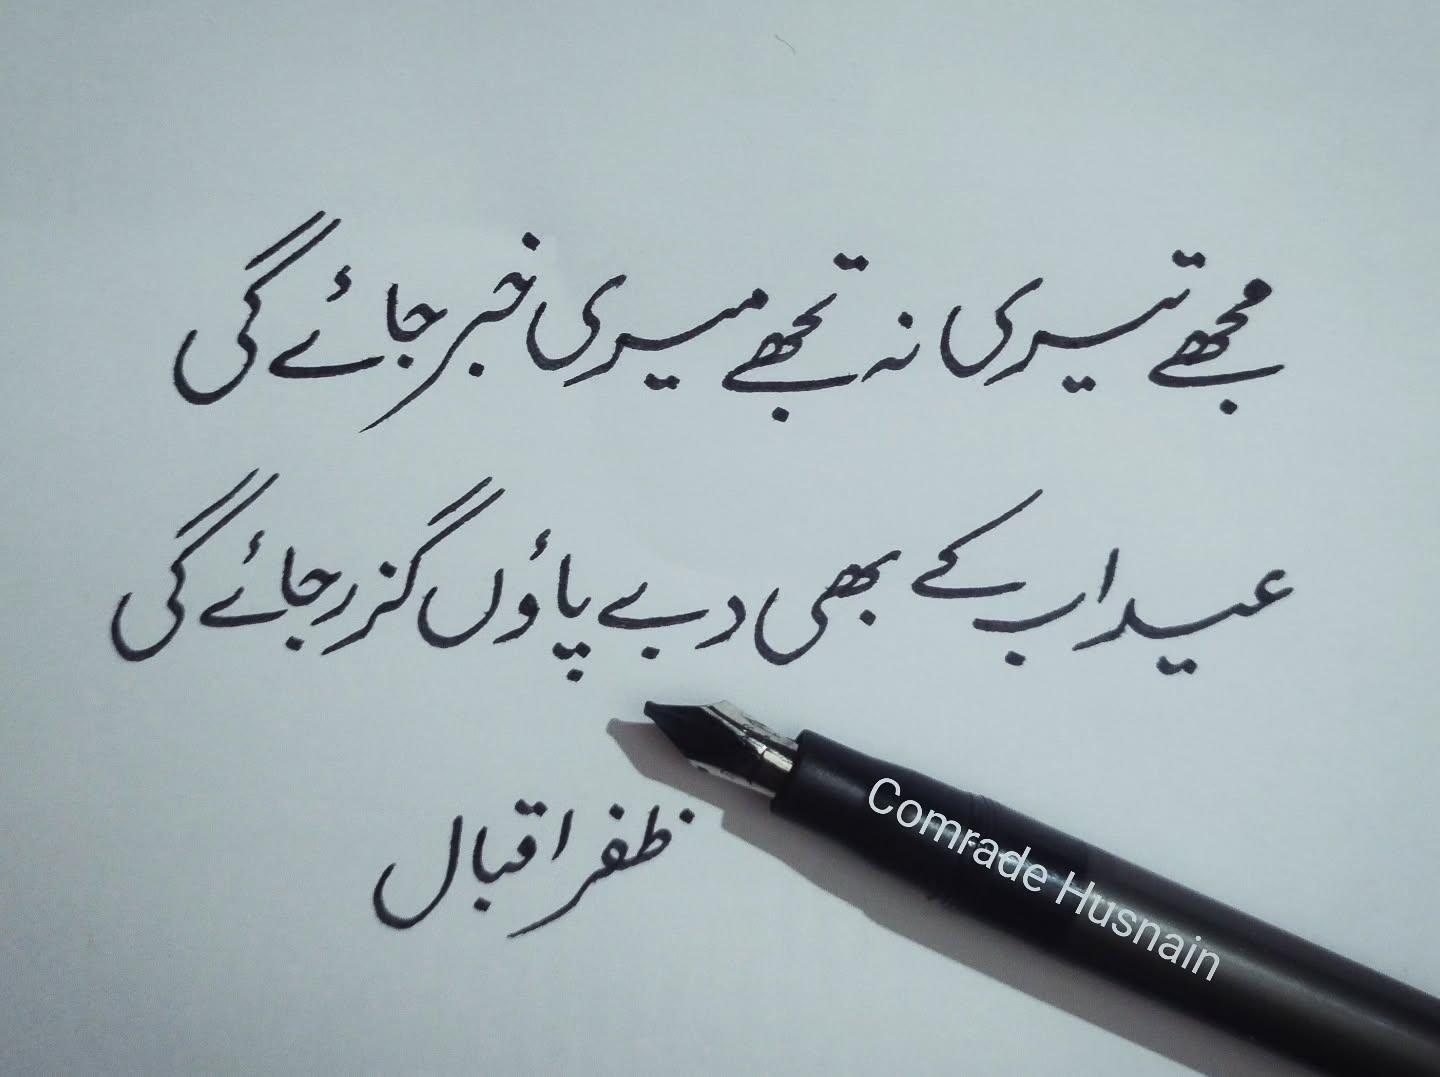 مجھے تیری نہ تجھے میری خبر جائے گی
عید اب کے بھی دبے پاؤں گزر جائے گی
ظفر اقبال
Comrade Husnain